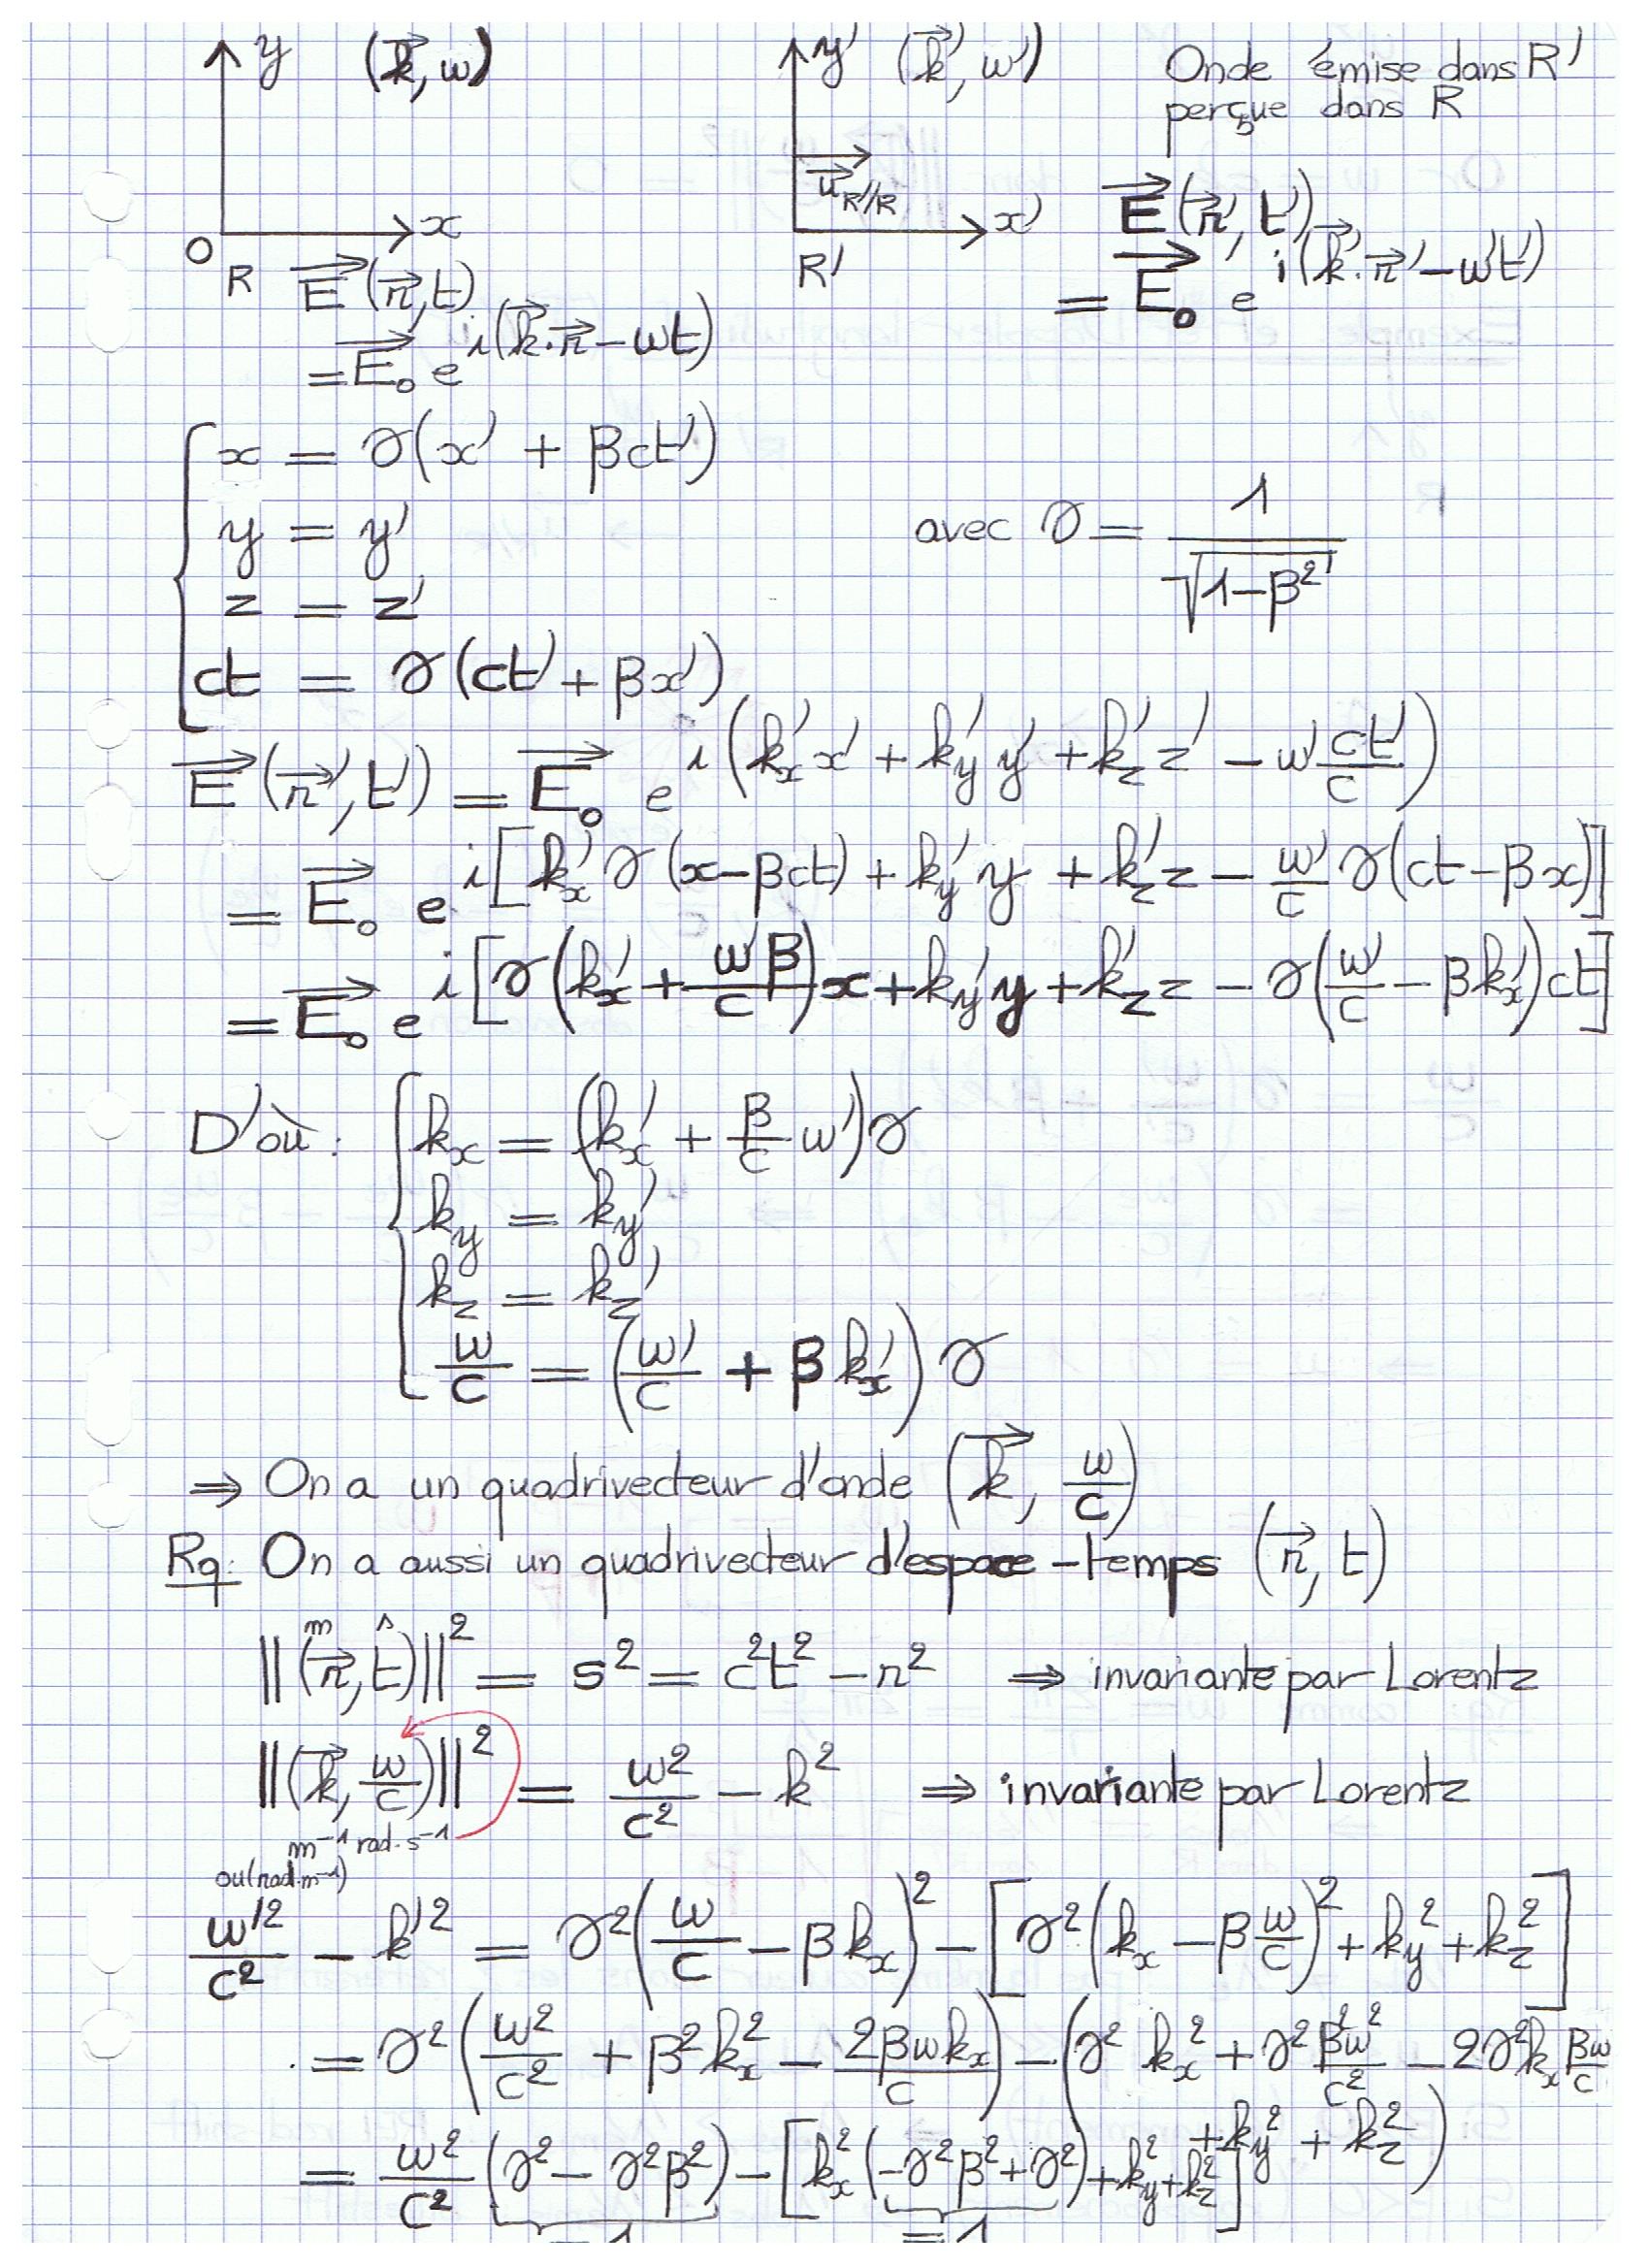 y (k⃗, ω)
y' (k⃗', ω')
Onde émise dans R'
perçue dans R
u⃗ R'/R
O R x
R' x'
E⃗(r⃗,t)
= E⃗₀ e^{i(k⃗·r⃗ - ωt)}
E⃗(r⃗',t')
= E⃗₀' e^{i(k⃗'·r⃗' - ω't')}
x = γ(x' + βct')
y = y'
z = z'
ct = γ(ct' + βx')
avec γ = 1/√(1-β²)
E⃗(r⃗',t') = E⃗₀ e^{i(k'ₓ'x' + k'y'y' + k'z'z' - ω'ct'/c)}
= E⃗₀ e^{i[k'ₓ'γ(x-βct) + k'y'y + k'z'z - ω'/c γ(ct-βx)]}
= E⃗₀ e^{i[γ(k'ₓ' + ω'β/c)x + k'y'y + k'z'z - γ(ω'/c - βk'ₓ')ct]}
D'où : kₓ = (k'ₓ' + β/c ω')γ
ky = k'y'
kz = k'z'
ω/c = (ω'/c + βk'ₓ')γ
⇒ On a un quadrivecteur d'onde (k⃗, ω/c)
Rq: On a aussi un quadrivecteur d'espace-temps (r⃗, t)
m s
||(r⃗,t)||² = s² = c²t² - r² ⇒ invariante par Lorentz
||(k⃗, ω/c)||² = ω²/c² - k² ⇒ invariante par Lorentz
m⁻¹ rad.s⁻¹
ou (rad.m⁻¹)
ω'²/c² - k'² = γ²(ω/c - βkₓ)² - [γ²(kₓ - βω/c)² + ky² + kz²]
= γ²(ω²/c² + β²kₓ² - 2βωkₓ/c) - (γ² kₓ² + γ²β²ω²/c² - 2γ²kₓ βω/c
+ ky² + kz²)
= ω²/c² (γ² - γ²β²) - [kₓ²(-γ²β² + γ²) + ky² + kz²]
= 1 = 1